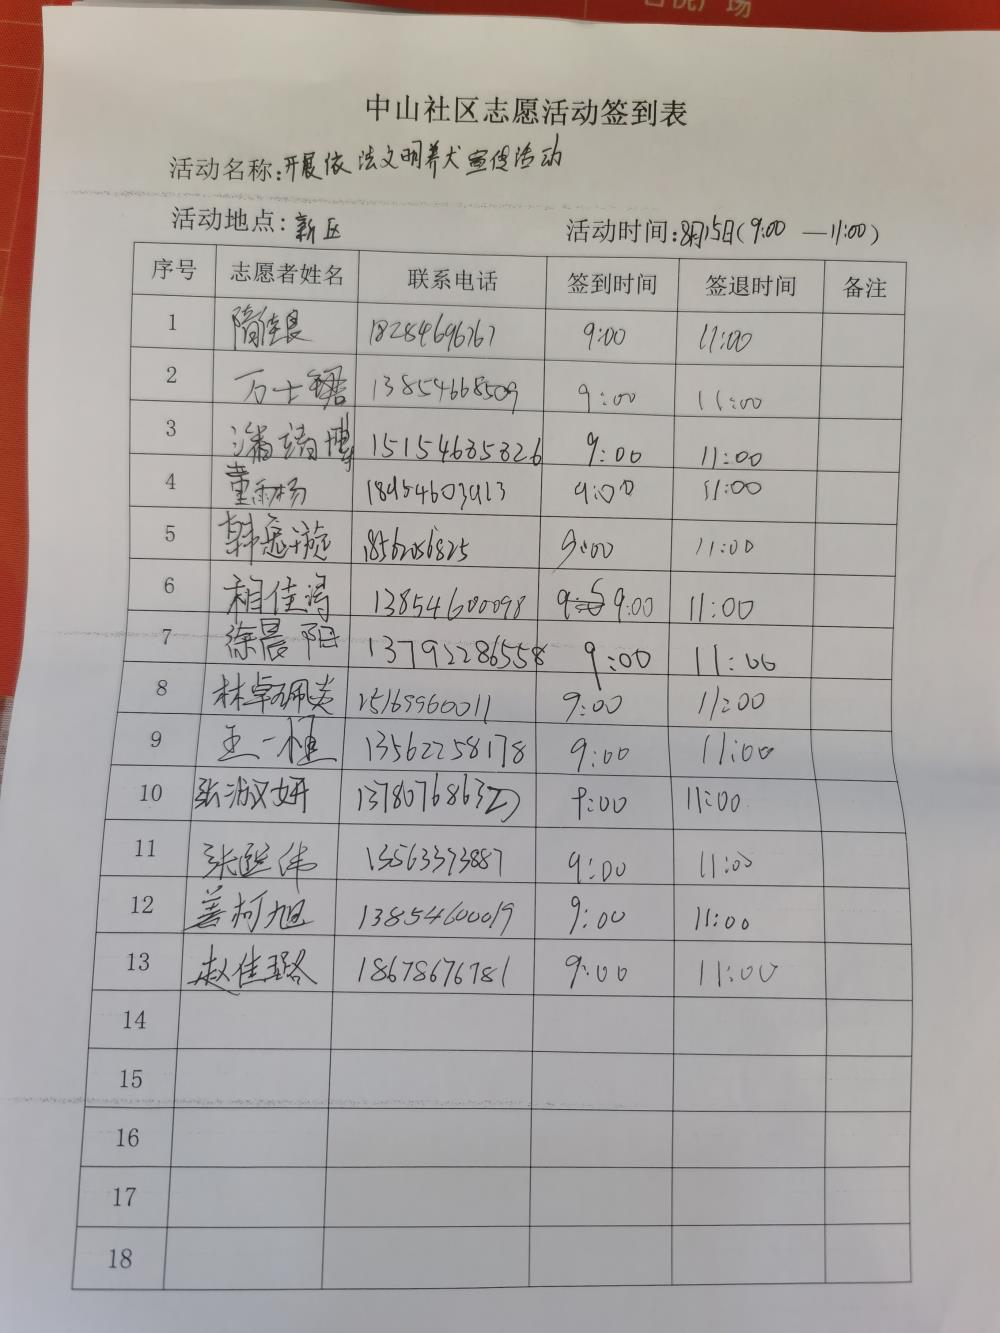 广场
中山社区志愿活动签到表
活动名称:开展依法文明养犬宣传活动
活动地点: 新区 活动时间:8月15日(9:00 —11:00)
序号 志愿者姓名 联系电话 签到时间 签退时间 备注
1 隋佳良 18284696767 9:00 11:00
2 万士 13854668509 9:00 11:00
3 潘靖博 15154635326 9:00 11:00
4 董雨杨 18954603913 9:00 11:00
5 韩 18562056825 9:00 11:00
6 相佳 13854600098 9:00 11:00
7 徐晨阳 13792286558 9:00 11:00
8 林卓珮炎 15169960011 9:00 11:00
9 王一恒 13562258178 9:00 11:00
10 张淑妍 9:00 11:00
11 张继伟 13563373887 9:00 11:00
12 姜柯旭 13854600019 9:00 11:00
13 赵佳璐 18678676781 9:00 11:00
14
15
16
17
18